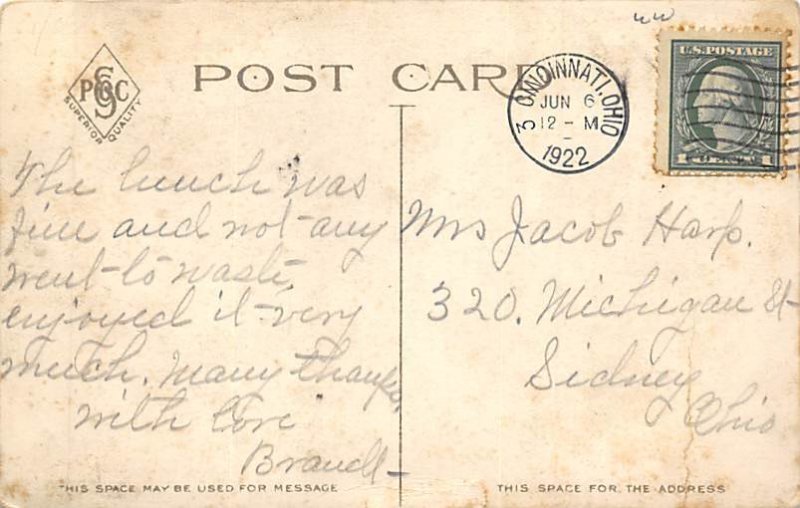 POST CARD
SUPERIOR QUALITY
CINCINNATI, OHIO
3
JUN 6
12 - M
1922
U.S. POSTAGE
1 1
The lunch was
fine and not any
went to waste,
enjoyed it very
much. Many thanks,
with love
Mrs Jacob Harp.
320. Michigan St
Sidney
Ohio
THIS SPACE MAY BE USED FOR MESSAGE
THIS SPACE FOR THE ADDRESS